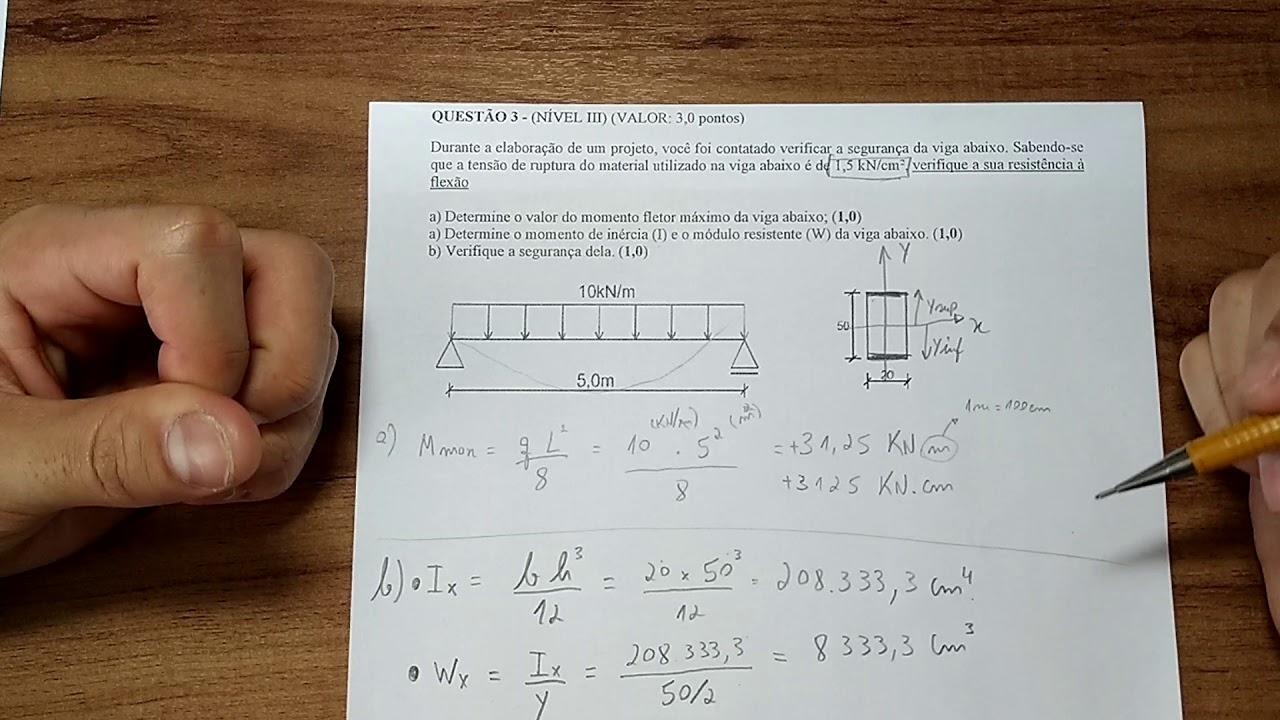 QUESTÃO 3 - (NÍVEL III) (VALOR: 3,0 pontos)
Durante a elaboração de um projeto, você foi contatado verificar a segurança da viga abaixo. Sabendo-se
que a tensão de ruptura do material utilizado na viga abaixo é de 1,5 kN/cm², verifique a sua resistência à
flexão
a) Determine o valor do momento fletor máximo da viga abaixo; (1,0)
a) Determine o momento de inércia (I) e o módulo resistente (W) da viga abaixo. (1,0)
b) Verifique a segurança dela. (1,0)
10kN/m
5,0m
Y
50
Ysup
x
Yinf
20
1m = 100cm
(KN/m) (m²)
a) Mmax = q L² / 8 = 10 . 5² / 8 = +31,25 KN m
+3125 KN.cm
b) • Ix = b h³ / 12 = 20 x 50³ / 12 = 208.333,3 cm⁴
• Wx = Ix / y = 208 333,3 / 50/2 = 8 333,3 cm³